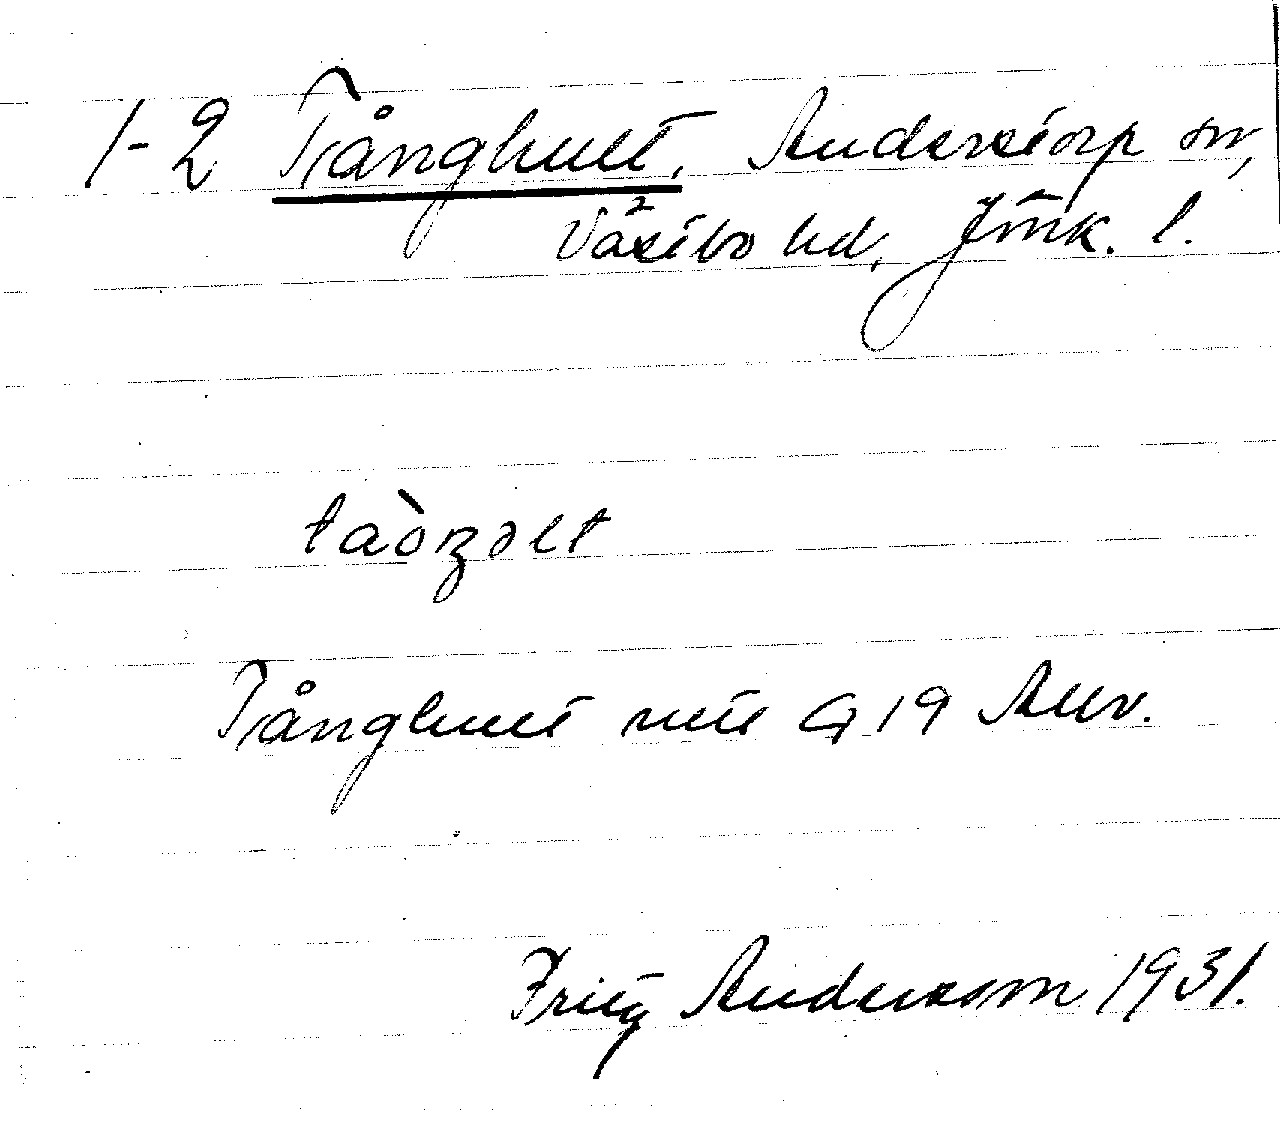 1-2 Tånghult, Anderstorp sn,
Västbo hd, Jönk. l.
taòŋəlt
Tånghult mtl G 19 Allv.
Fritz Andersson 1931.